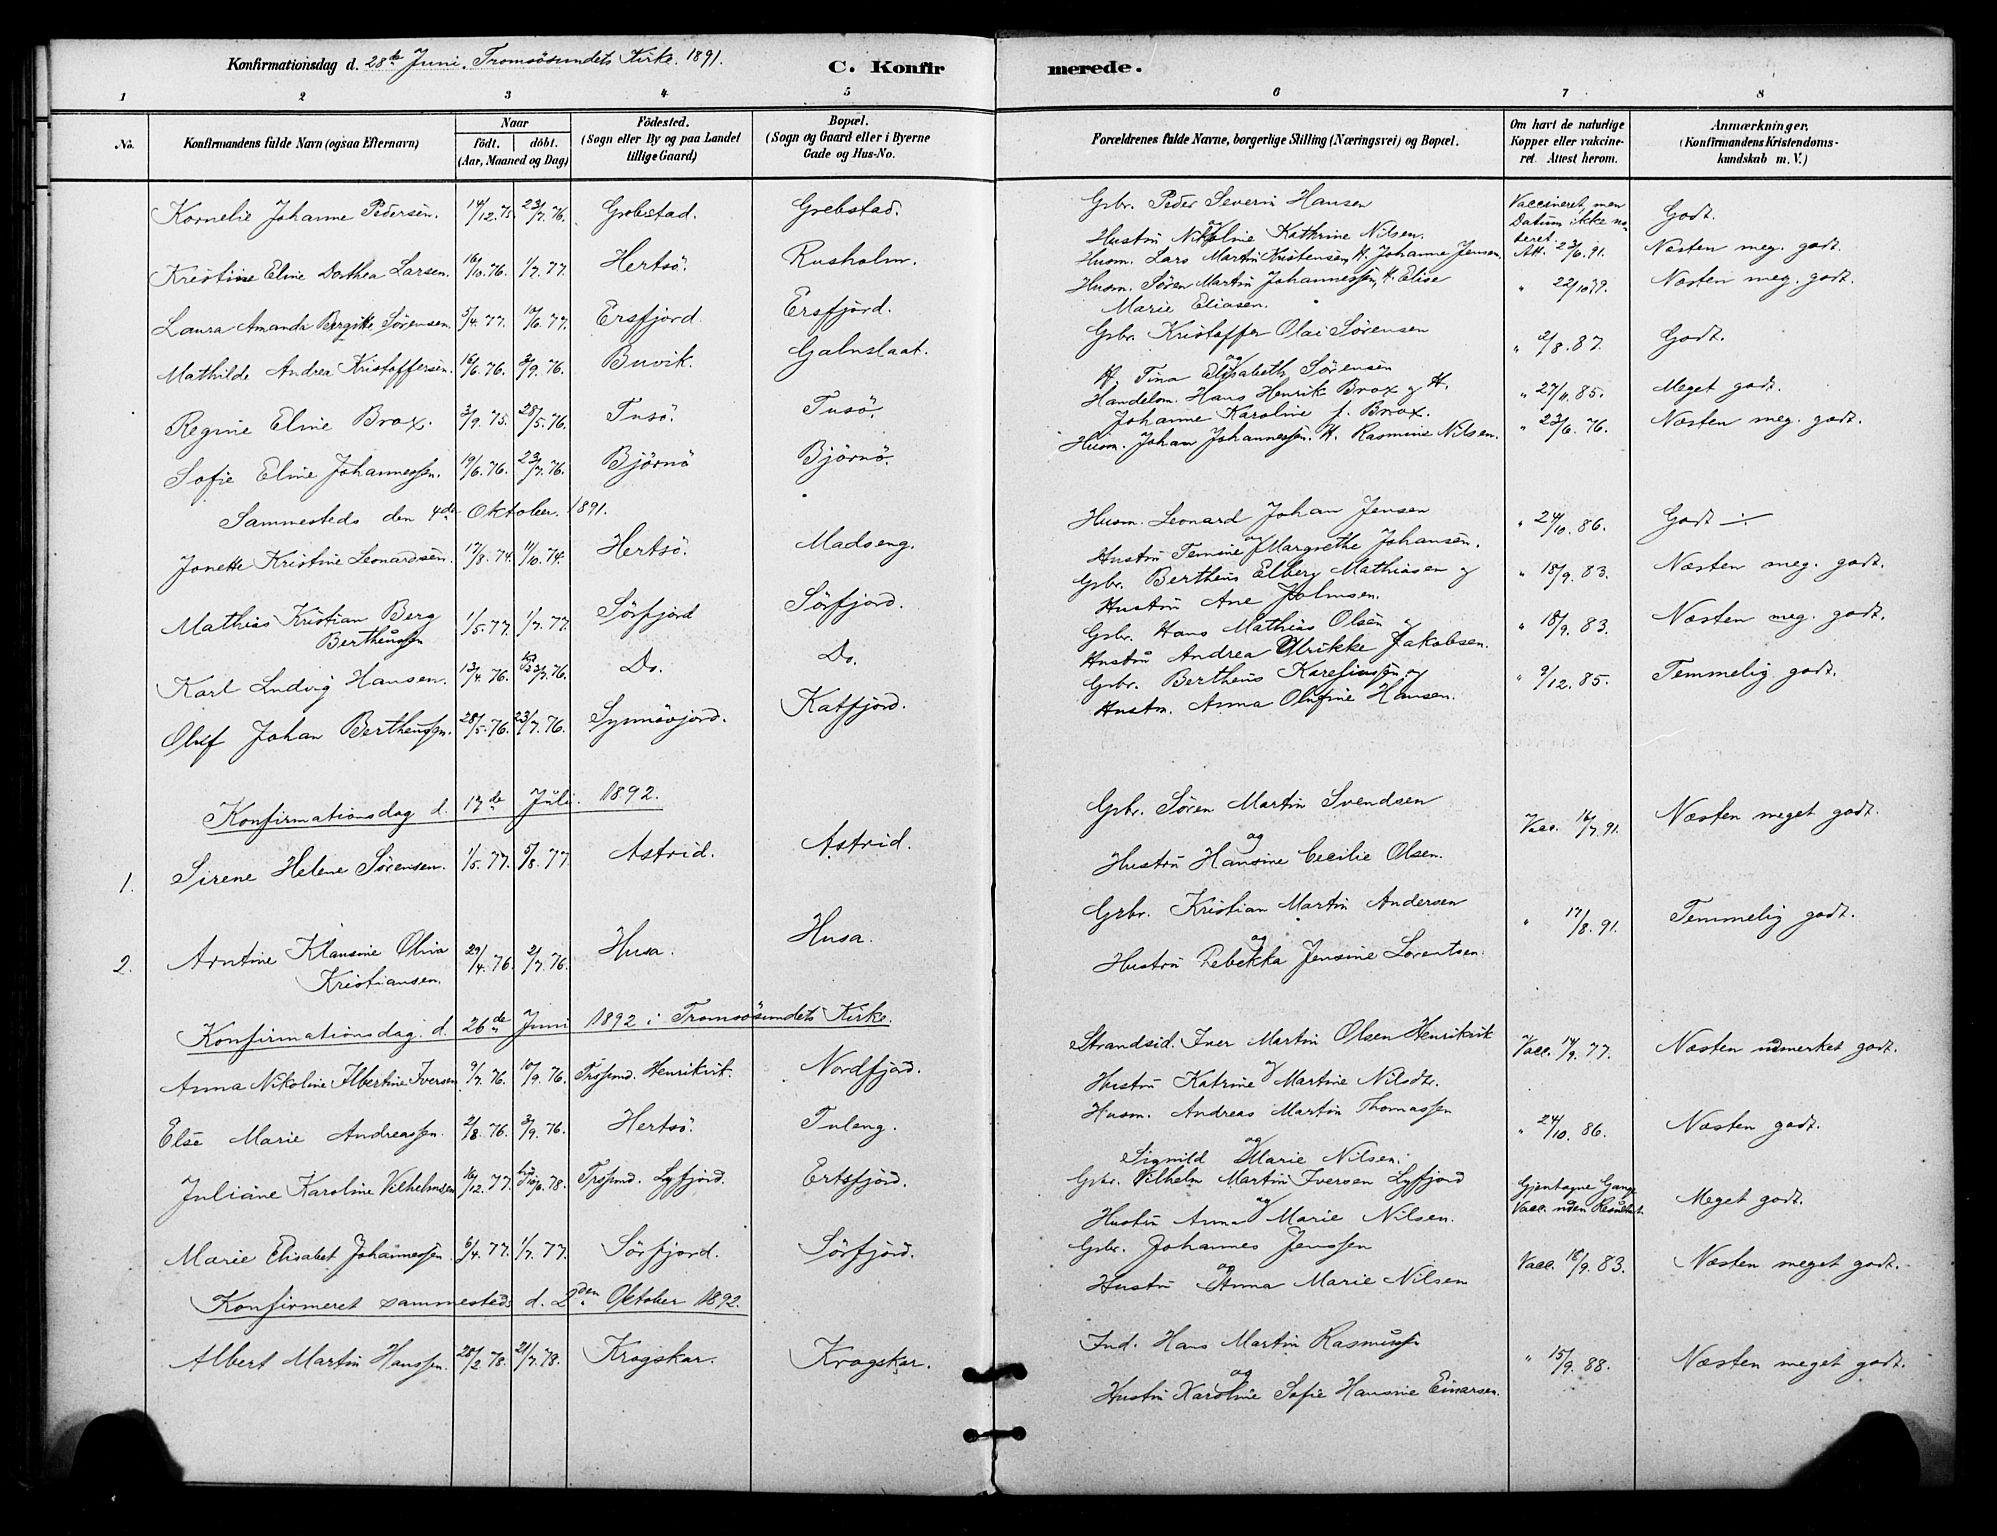 Konfirmationsdag d. 28de Juni. Tromsösundets Kirke. 1891. C. Konfirmerede.
1 2 3 4 5 6 7 8
No. Konfirmandens fulde Navn (ogsaa Efternavn) Naar født. døbt. (Aar, Maaned og Dag) Födested. (Sogn eller By og paa Landet tillige Gaard) Bopæl. (Sogn og Gaard eller i Byerne Gade og Hus-No. Forældrenes fulde Navne, borgerlige Stilling (Næringsvei) og Bopæl. Om havt de naturlige Kopper eller vakcineret. Attest herom. Anmærkninger. (Konfirmandens Kristendomskundskab m. V.)
Kornelie Johanne Pedersen. 14/12. 75. 23/7. 76. Grebstad. Grebstad. Gsbr. Peder Severin Hansen og Hustru Nikoline Kathrine Nilsen. Vaccineret, men Datum ikke noteret. Godt.
Kristine Eline Dorthea Larsen. 16/10. 76. 1/7. 77. Hertsö. Rusholm. Husm. Lars Martin Kristensen, H. Johanne Jensen. Att. 23/6. 91. Næsten meg. godt.
Laura Amanda Bergitte Sørensen. 5/4. 77. 10/6. 77. Ersfjord. Ersfjord. Husm. Søren Martin Johannessen, H. Elise Marie Eliasen. " 22/10 79. Næsten meg. godt.
Mathilde Andrea Kristoffersen. 16/6. 76. 3/9. 76. Buvik. Galnslaat. Gsbr. Kristoffer Olai Sørensen og H. Tina Elisabeth Sørensen " 2/8. 87. Godt.
Regine Eline Brox. 3/9. 75. 28/5. 76. Tusö. Tusö. Handelsm. Hans Henrik Brox og H. Johanne Karoline f. Brox. " 27/11. 85. Meget godt.
Sofie Eline Johannessen. 19/6. 76. 23/7. 76. Björnö Björnö. Husm. Johan Johannessen. H. Rasmine Nilsen. " 23/6. 76. Næsten meg. godt.
Sammesteds den 4de Oktober. 1891.
Jonette Kristine Leonardsen. 17/8. 74. 11/10. 74. Hertsö. Madseng. Husm. Leonard Johan Jensen og Hustru Temine Margrethe Johansen. " 24/10. 86. Godt
Mathias Kristian Berg Bertheussen 1/5. 77. 1/7. 77. Sörfjord Sörfjord. Gsbr. Bertheus Elberg Mathiasen og Hustru Ane Holmsen. " 18/9. 83. Næsten meg. godt.
Karl Ludvig Hansen. 13/4. 76. 23/7. 76. Do. Do. Gsbr. Hans Mathias Olsen og Hustru Andrea Ulrikke Jakobsen. " 18/9. 83. Næsten meg. godt.
Oluf Johan Bertheussen. 28/5. 76. 23/7. 76. Katfjord. Gsbr. Bertheus og Hustru Anna Olufine Hansen. " 9/12. 85. Temmelig godt.
Konfirmationsdag d. 17de Juli. 1892.
1. Sirene Helene Sørensen. 1/5. 77. 5/8. 77 Astrid. Astrid. Gsbr. Søren Martin Svendsen og Hustru Hansine Cecilie Olsen. Vacc. 16/7. 91. Næsten meget godt.
2. Arntine Klausine Olivia Kristiansen. 29/4. 76. 2/7. 76. Husa. Husa. Gsbr. Kristian Martin Andersen og Hustru Rebekka Jensine Lorentsen. " 17/8. 91. Temmelig godt.
Konfirmationsdag. d. 26de Juni 1892 i Tromsösundets Kirke.
Anna Nikoline Albertine Iversen 9/7. 76. 10/9. 76. Trssund. Henrikvik. Nordfjord. Strandsid. Iver Martin Olsen Henrikvik og Hustru Katrine Martine Nilsdtr. Vacc. 14/9. 77. Næsten udmerket godt.
Else Marie Andreassen. 2/8. 76. 3/9. 76. Hertsö. Tuleng. Husm. Andreas Martin Thomassen og Signild Marie Nilsen. " 24/10. 86. Næsten godt.
Juliane Karoline Vilhelmsen 16/12. 77. 10/6. 78. Trssund. Lyfjord. Ertsfjord. Gsbr. Vilhelm Martin Iversen Lyfjord og Hustru Anna Marie Nilsen. Gjentagne Gange Vacc. uden Resultat. Meget godt.
Marie Elisabet Johannessen. 6/4. 77. 1/7. 77. Sörfjord. Sörfjord. Gsbr. Johannes Jenssen og Hustru Anna Marie Nilsen Vacc. 18/9. 83. Næsten meget godt.
Konfirmeret sammesteds d. 2den Oktober 1892.
Albert Martin Hanssen. 28/2. 78. 21/7. 78. Krogskar. Krogskar. Ind. Hans Martin Rasmussen og Hustru Karoline Sofie Hansine Einarsen. " 15/9. 88. Næsten meget godt.